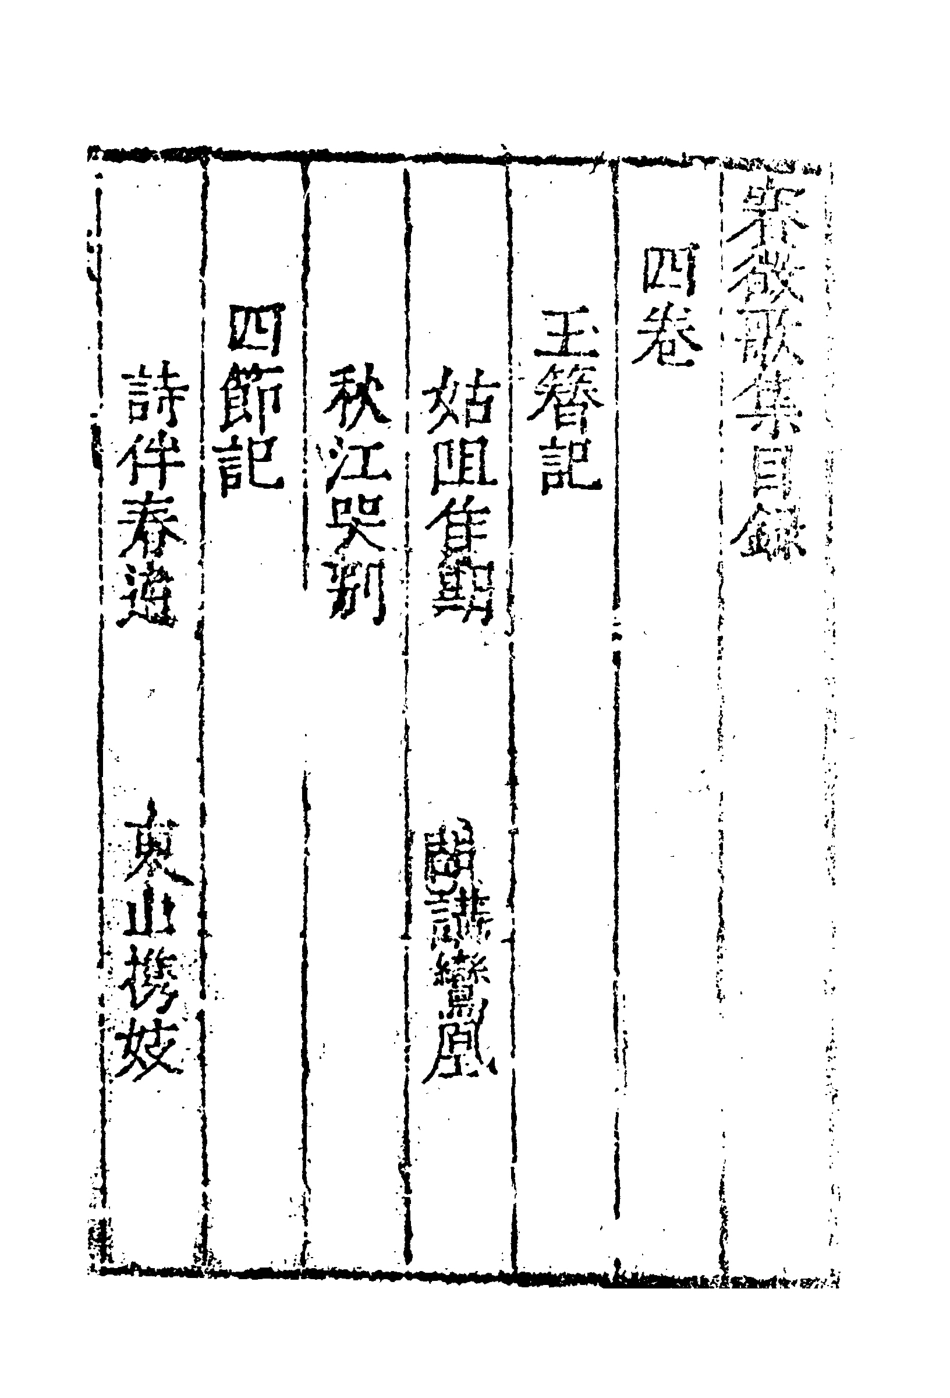 賽徵歌集目錄
四卷
玉簪記
姑阻佳期　講鸞凰
秋江哭別
四節記
詩伴春遊　東山携妓